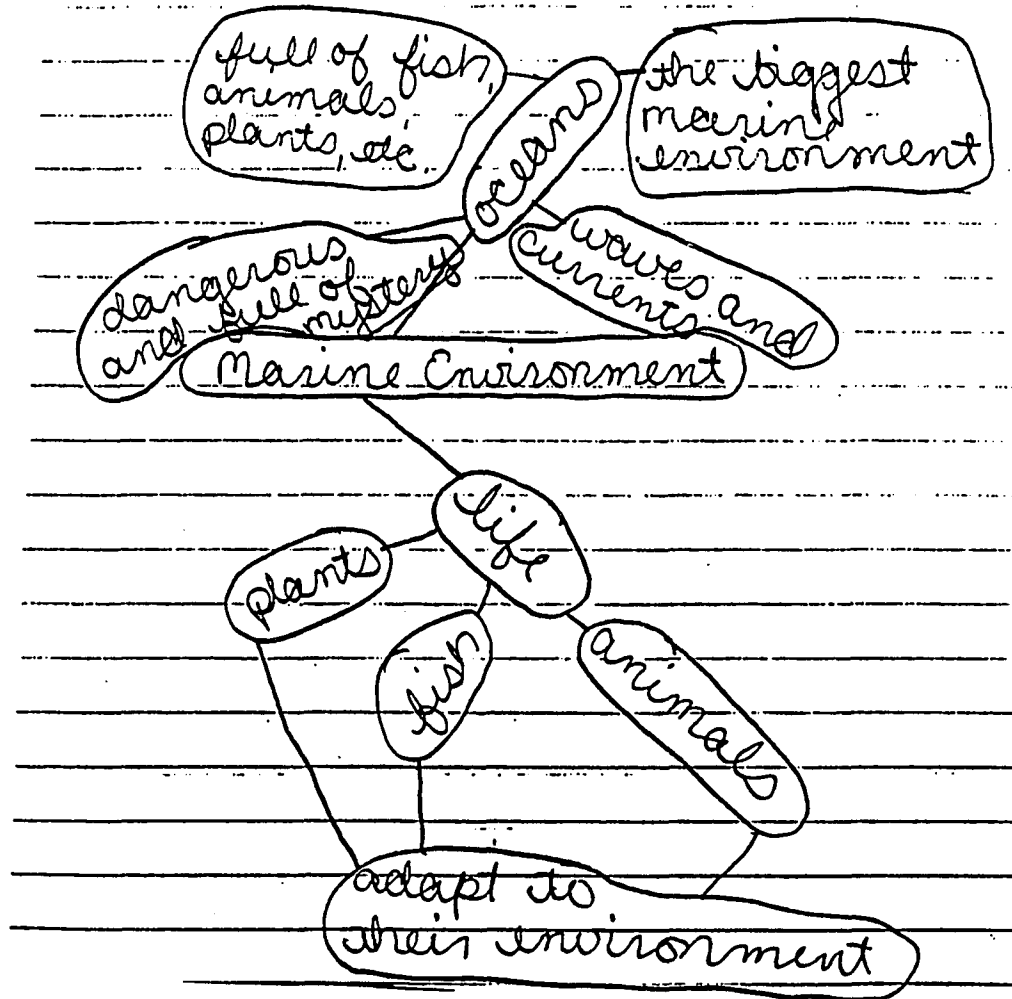 full of fish,
animals,
plants, etc.
oceans
the biggest
marine
environment
dangerous
and full of
mystery
waves and
currents
Marine Environment
life
plants
fish
animals
adapt to
their environment